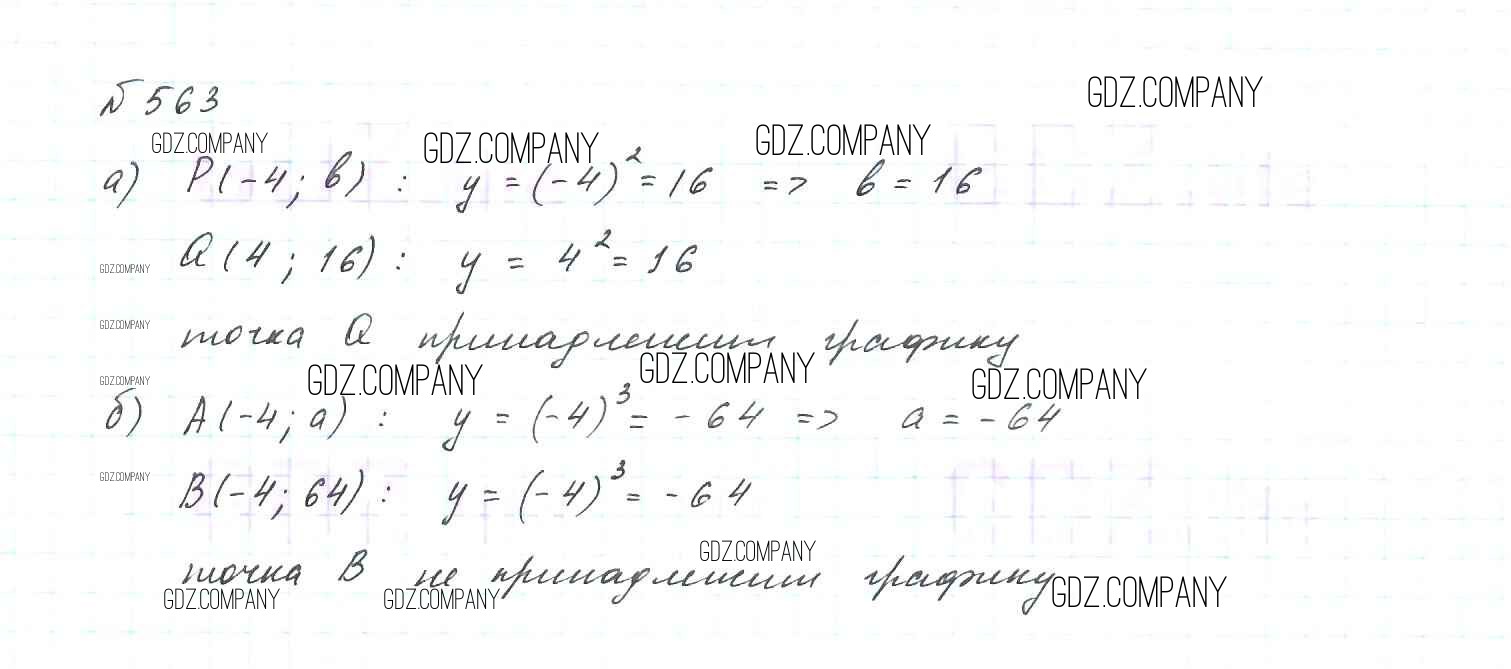 № 563
GDZ.COMPANY
GDZ.COMPANY GDZ.COMPANY GDZ.COMPANY
а) P(-4; b) : y = (-4)² = 16 => b = 16
GDZ.COMPANY Q(4; 16) : y = 4² = 16
GDZ.COMPANY
точка Q принадлежит графику
GDZ.COMPANY GDZ.COMPANY GDZ.COMPANY GDZ.COMPANY
б) A(-4; a) : y = (-4)³ = -64 => a = -64
GDZ.COMPANY B(-4; 64) : y = (-4)³ = -64
GDZ.COMPANY
точка B не принадлежит графику
GDZ.COMPANY GDZ.COMPANY GDZ.COMPANY